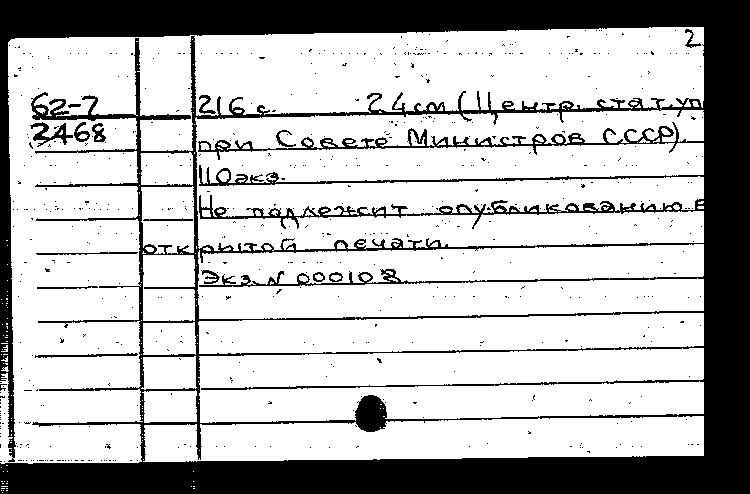 2
62-7 216 с. 24 см (Центр. стат. уп
2468 при Совете Министров СССР).
110 экз.
Не подлежит опубликованию в
открытой печати.
Экз. N 000108.